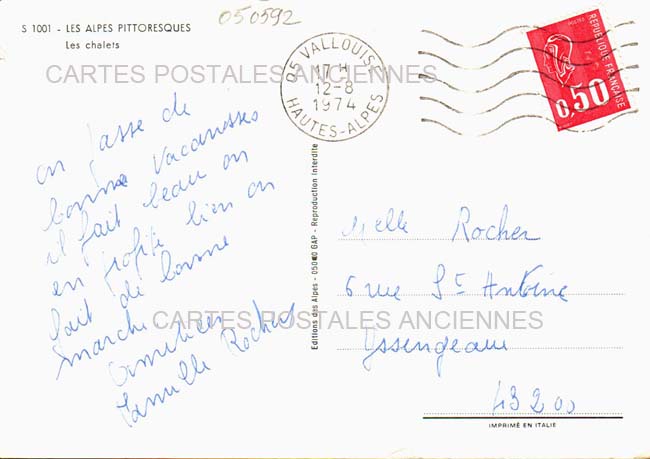 050592
S 1001 - LES ALPES PITTORESQUES
Les chalets
05 VALLOUISE
17 H
12-8
1974
HAUTES-ALPES
POSTES
REPUBLIQUE FRANÇAISE
0,50
CARTES POSTALES ANCIENNES
on passe de
bonne vacansses
il fait beau on
en profite bien on
fait de bonne
marche
amitiées
famille Rocher
Editions des Alpes - 05000 GAP - Reproduction interdite
Melle Rocher
6 rue St Antoine
CARTES POSTALES ANCIENNES
Yssengeaux
43200
IMPRIMÉ EN ITALIE